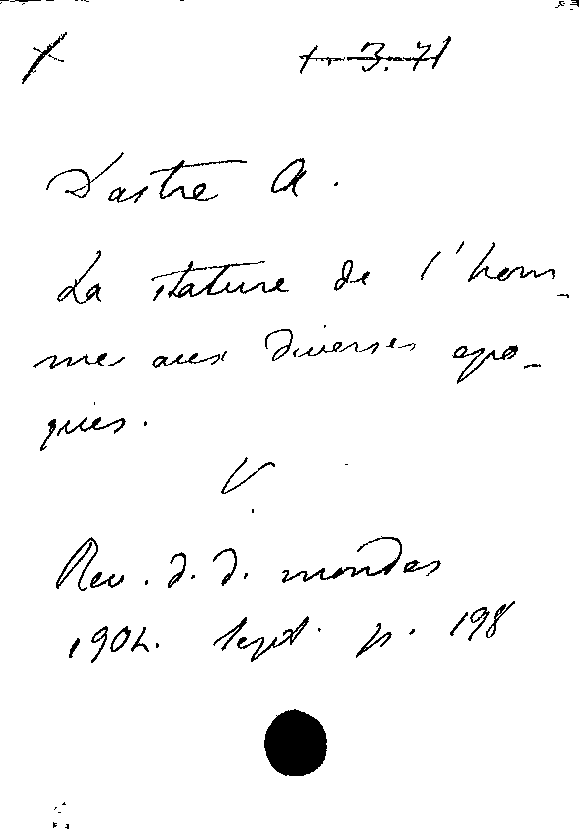 1. 3. 71
Dastre A.
La stature de l'hom-
me aux diverses épo-
ques.
V
Rev. d. d. mondes
1904. Sept. p. 198